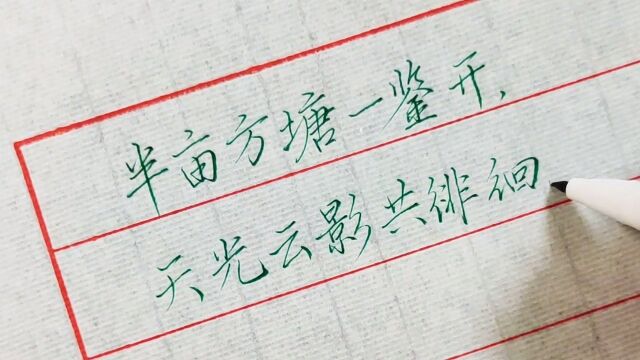 半亩方塘一鉴开，
天光云影共徘徊